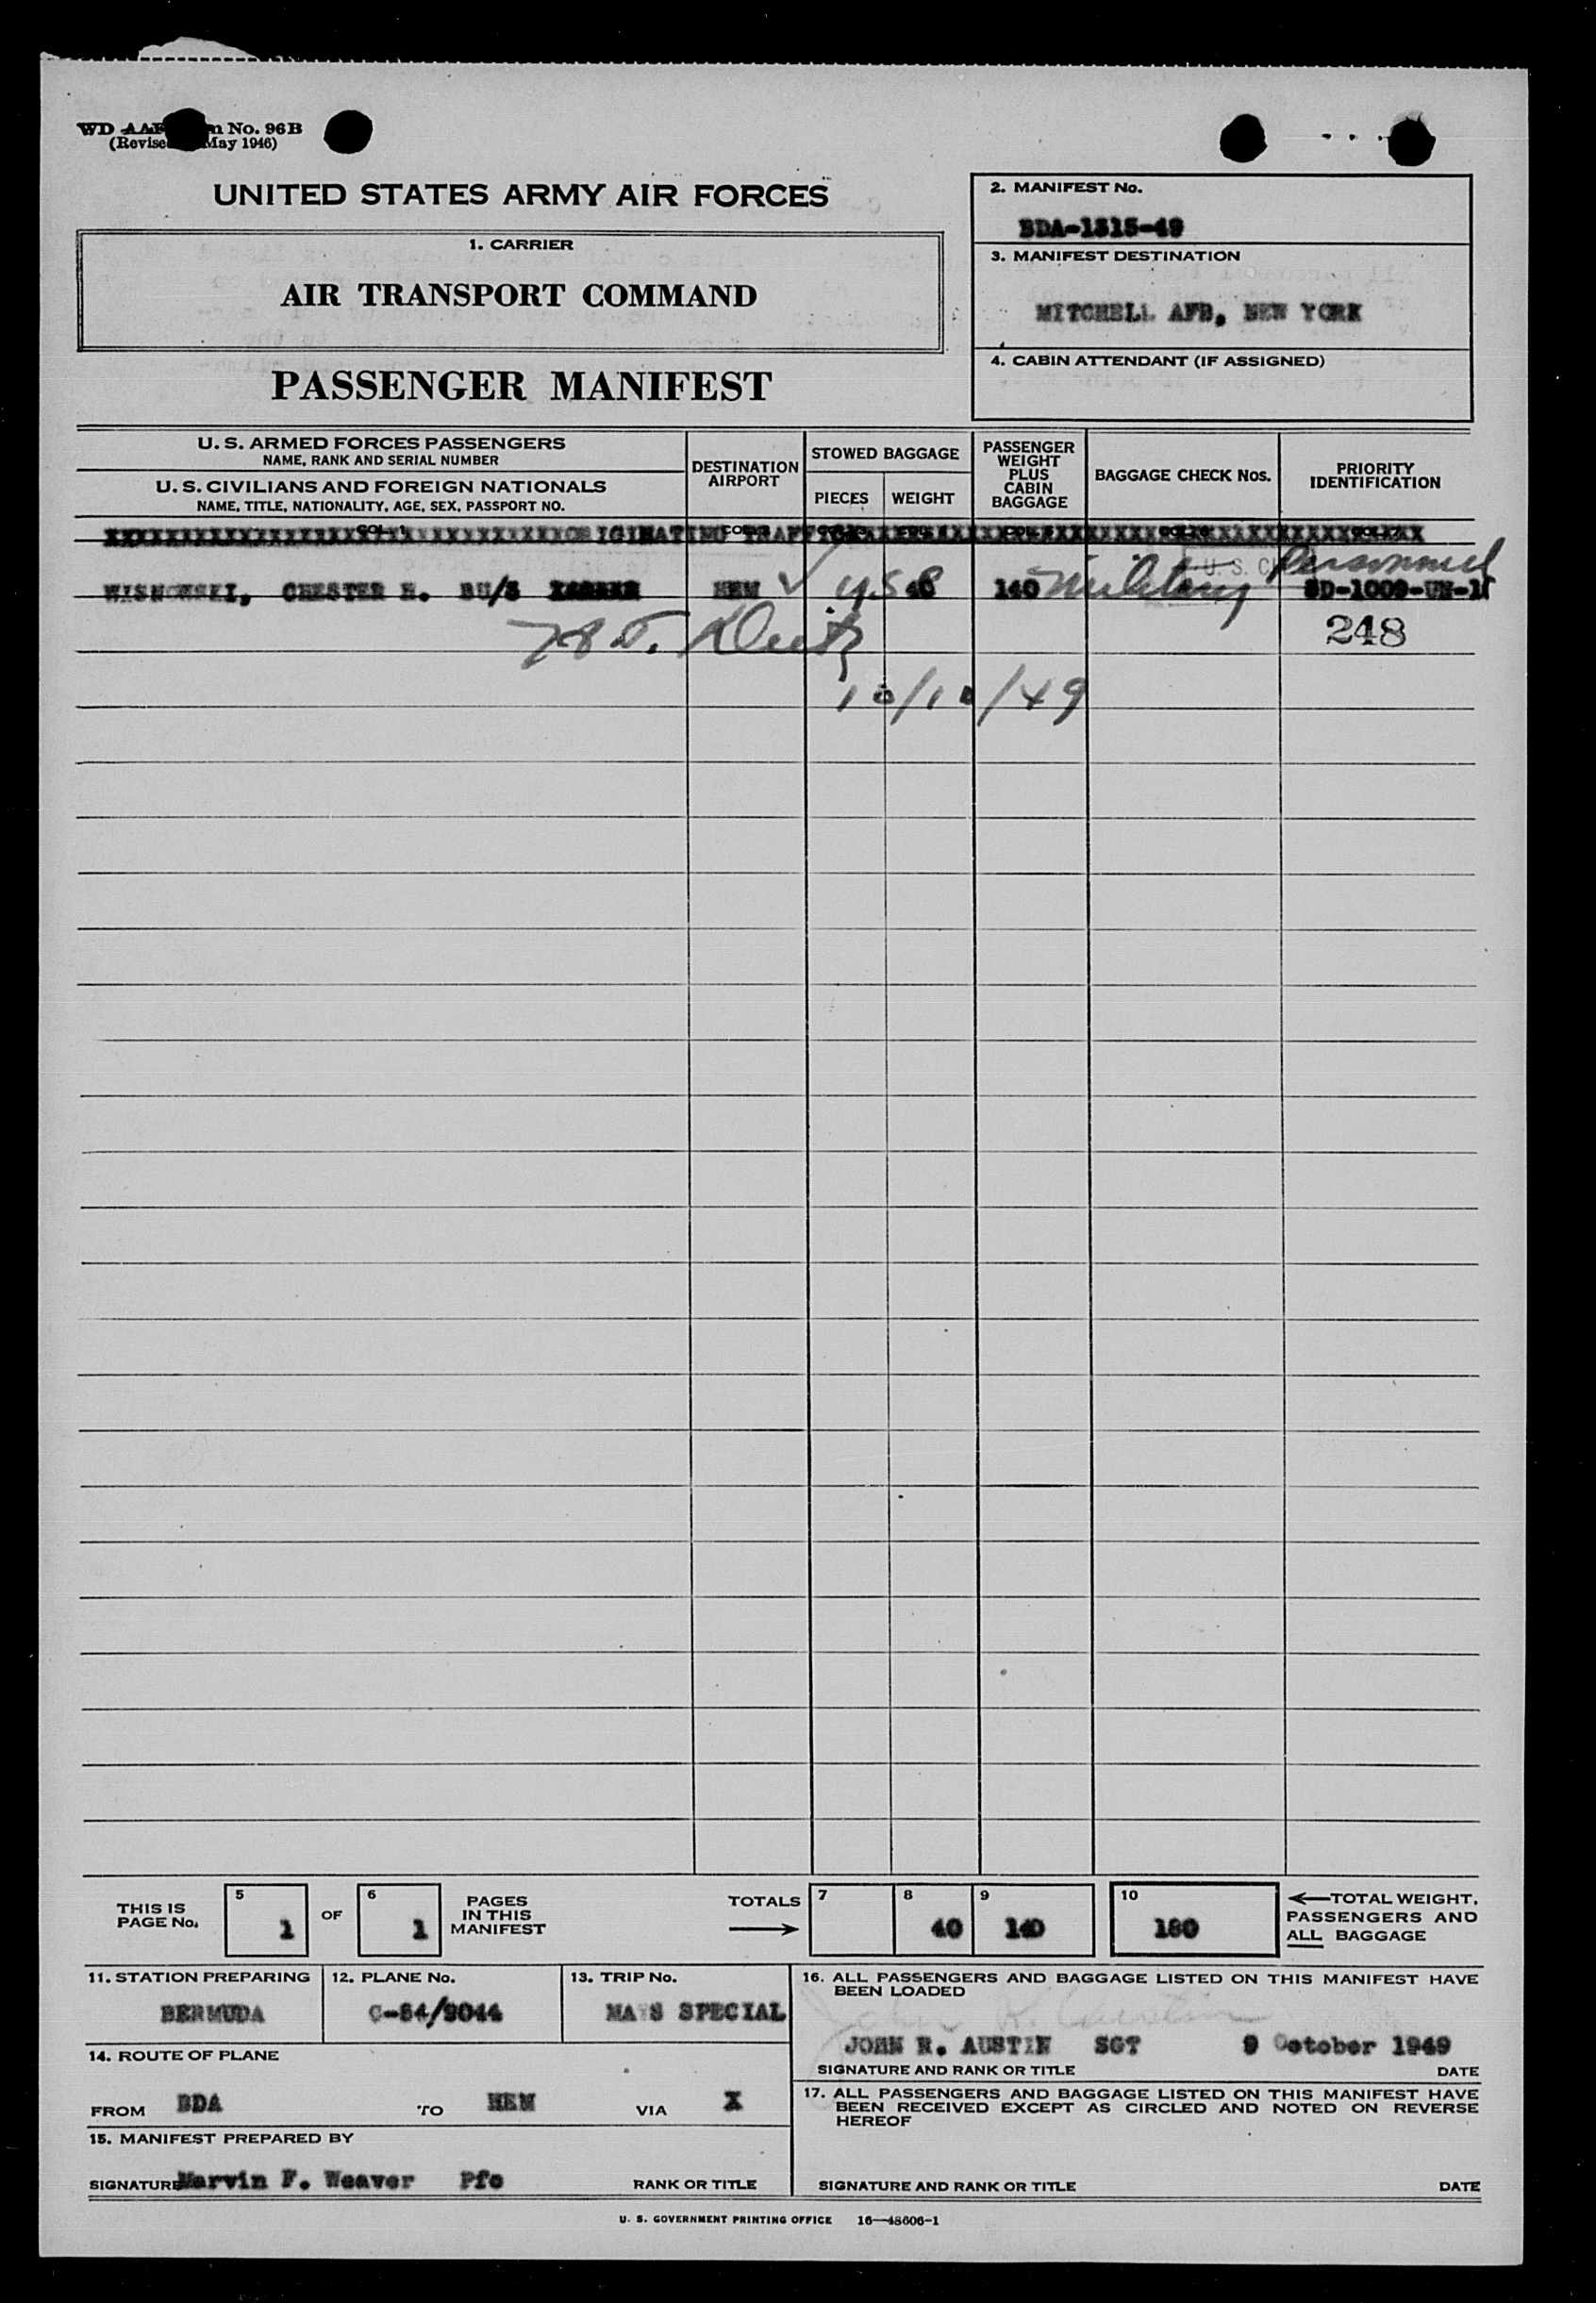 WD AAF No. 96B
(Revised May 1946)
UNITED STATES ARMY AIR FORCES
1. CARRIER
AIR TRANSPORT COMMAND
PASSENGER MANIFEST
2. MANIFEST No.
BDA-1315-49
3. MANIFEST DESTINATION
MITCHELL AFB, NEW YORK
4. CABIN ATTENDANT (IF ASSIGNED)
U. S. ARMED FORCES PASSENGERS
NAME, RANK AND SERIAL NUMBER
U. S. CIVILIANS AND FOREIGN NATIONALS
NAME, TITLE, NATIONALITY, AGE, SEX, PASSPORT NO.
DESTINATION
AIRPORT
STOWED BAGGAGE
PIECES WEIGHT
PASSENGER
WEIGHT
PLUS
CABIN
BAGGAGE
BAGGAGE CHECK Nos.
PRIORITY
IDENTIFICATION
ORIGINATING TRAFFIC
Military Personnel
WISNOWSKI, CHESTER H. BU/S HEM 140
248
10/10/49
THIS IS
PAGE No.
5
1
OF
6
1
PAGES
IN THIS
MANIFEST
TOTALS
7
8
40
9
140
10
180
TOTAL WEIGHT,
PASSENGERS AND
ALL BAGGAGE
11. STATION PREPARING
BERMUDA
12. PLANE No.
C-54/9044
13. TRIP No.
MATS SPECIAL
14. ROUTE OF PLANE
FROM BDA TO HEM VIA X
15. MANIFEST PREPARED BY
SIGNATURE Marvin F. Weaver Pfc RANK OR TITLE
16. ALL PASSENGERS AND BAGGAGE LISTED ON THIS MANIFEST HAVE
BEEN LOADED
John R. Austin
JOHN R. AUSTIN SGT 9 October 1949
SIGNATURE AND RANK OR TITLE DATE
17. ALL PASSENGERS AND BAGGAGE LISTED ON THIS MANIFEST HAVE
BEEN RECEIVED EXCEPT AS CIRCLED AND NOTED ON REVERSE
HEREOF
SIGNATURE AND RANK OR TITLE DATE
U. S. GOVERNMENT PRINTING OFFICE 16—48606-1